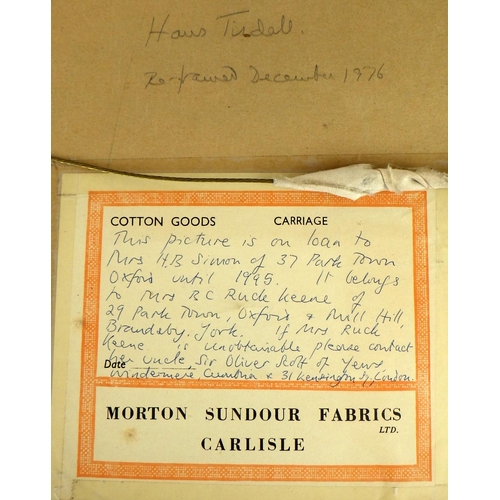 Hans Tisdall.
Re-framed December 1976
COTTON GOODS CARRIAGE
This picture is on loan to
Mrs H.B Simon of 37 Park Town
Oxford until 1995. It belongs
to Mrs RC Ruck Keene of
29 Park Town, Oxford & Mill Hill,
Brandsby. York. If Mrs Ruck
Keene is unobtainable please contact
her uncle, Sir Oliver Scott of Yews
Date
Windermere Cumbria & 31 Kensington Sq, London.
MORTON SUNDOUR FABRICS
LTD.
CARLISLE